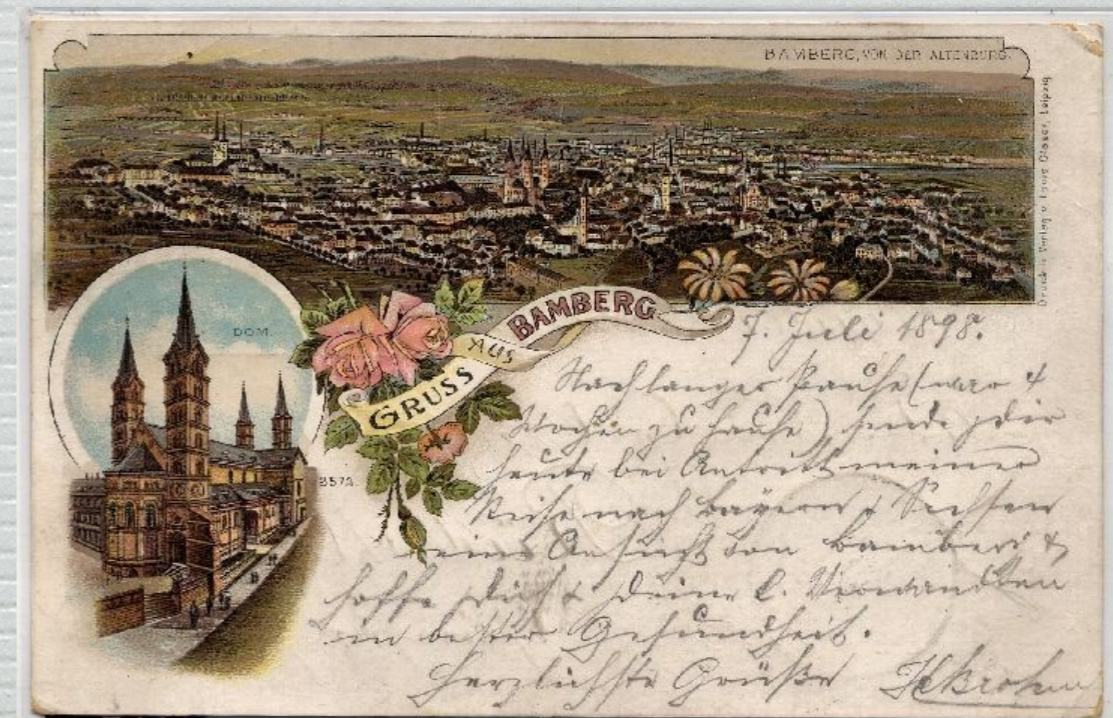 BAMBERG, VON DER ALTENBURG.
Druck u. Verlag v. Louis Glaser, Leipzig
DOM.
GRUSS AUS BAMBERG
3573.
7. Juli 1898.
Nach langer Pause (war 4
Wochen zu Hause) sende dir
heute bei Antritt meiner
Reise nach Bayern & Sachsen
eine Ansicht von Bamberg &
hoffe Dich & Deine l. Verwandten
in bester Gesundheit.
Herzlichste Grüße